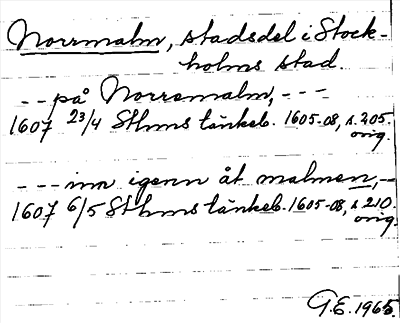 Norrmalm, stadsdel i Stock-
holms stad.
- - på Norremalm, - - -
1607 23/4 Sthms tänkeb. 1605-08, s. 205.
orig.
- - - inn igenn åt malmen, -
1607 6/5 Sthms tänkeb. 1605-08, s. 210.
orig.
G.E. 1965.